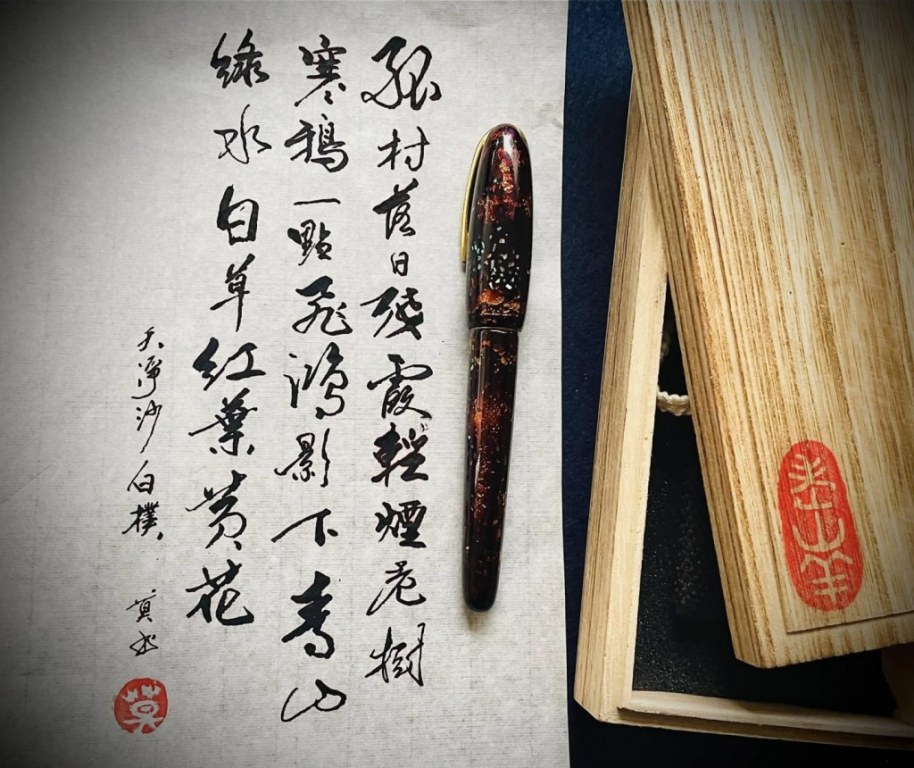 孤村落日殘霞輕煙老樹
寒鴉一點飛鴻影下青山
綠水白草紅葉黃花
天淨沙 白樸
莫
莫